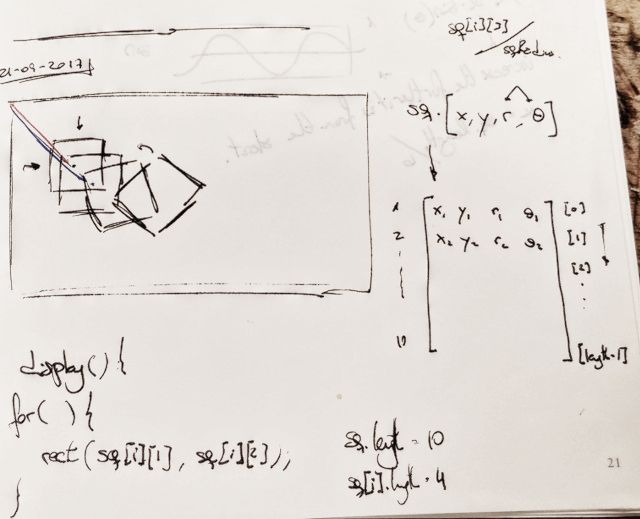 sq[i][2]
sqRadius
21-09-2017
sq. [x, y, r, θ]
1 x₁ y₁ r₁ θ₁ [0]
2 x₂ y₂ r₂ θ₂ [1]
[2]
10 [length-1]
display() {
for( ) {
rect(sq[i][1], sq[i][2]);
}
sq.length = 10
sq[i].length = 4
21